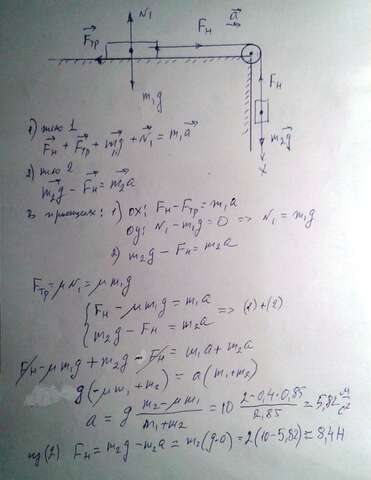 N₁
F⃗тр
Fн
a⃗
Fн
m₁g
m₂g⃗
x
1) тело 1
F⃗н + F⃗тр + m₁g⃗ + N⃗₁ = m₁a⃗
2) тело 2
m₂g⃗ - F⃗н = m₂a⃗
в проекциях: 1) ox: Fн - Fтр = m₁a
oy: N₁ - m₁g = 0 => N₁ = m₁g
2) m₂g - Fн = m₂a
Fтр = μN₁ = μm₁g
{ Fн - μm₁g = m₁a
m₂g - Fн = m₂a => (1)+(2)
Fн - μm₁g + m₂g - Fн = m₁a + m₂a
g(-μm₁ + m₂) = a(m₁ + m₂)
a = g (m₂ - μm₁)/(m₁ + m₂) = 10 (2 - 0,4·0,85)/2,85 = 5,82 м/с²
из (2) Fн = m₂g - m₂a = m₂(g-a) = 2(10-5,82) = 8,4 Н